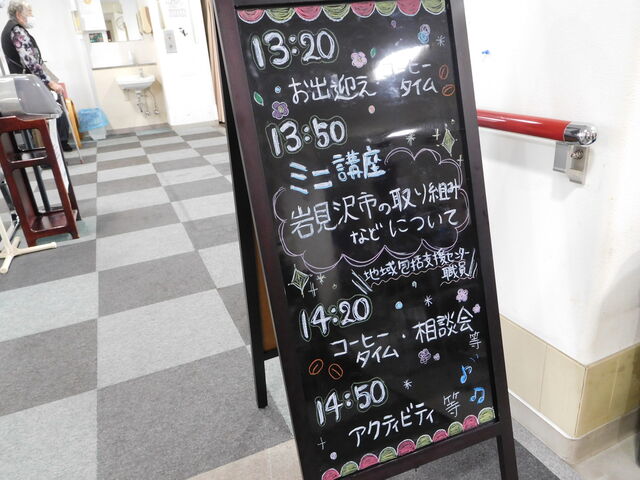 13:20
お出迎え コーヒー
タイム
13:50
ミニ講座
岩見沢市の取り組み
などについて
地域包括支援センター
職員
14:20
コーヒー
タイム・相談会等
14:50
アクティビティ等